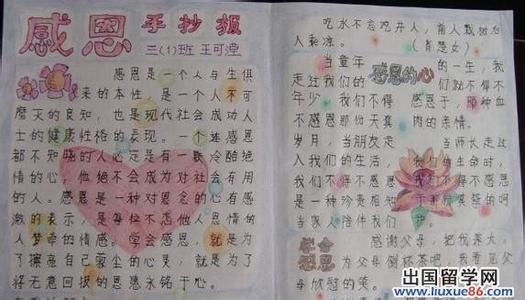 感恩 手抄报
三(1)班 王可滢
感恩是一个人与生俱
来的本性,是一个人不可
磨灭的良知,也是现代社会成功人
士的健康性格的表现。一个连感恩
都不知晓的人必定是有一颗冷酷绝
情的心,他绝不会成为对社会有用
的人。感恩是一种对恩惠的心有感
激的表示,是每位不忘他人恩情的
人萦绕的情感。学会感恩,就是为
了擦亮自己蒙尘的心灵,就是为了
将无意回报的恩惠永铭于心。
吃水不忘吃井人,前人栽树后
人乘凉。
当童年 的一生,我
走过我们的 感恩的心 们就不得不
年少 我们不得 感恩于,那种血
不感恩那份天真 肉的亲情。
岁月,当朋友走 当师长走过
入我们的生活, 我们的生命时,
我们不得不感恩 我们不得不感恩
是一种珍贵相知
当人陪伴我们
学会感恩
感谢父母,把我养大,
为父母倒杯茶吧,我
母欣慰的笑。
出国留学网
www.liuxue86.com